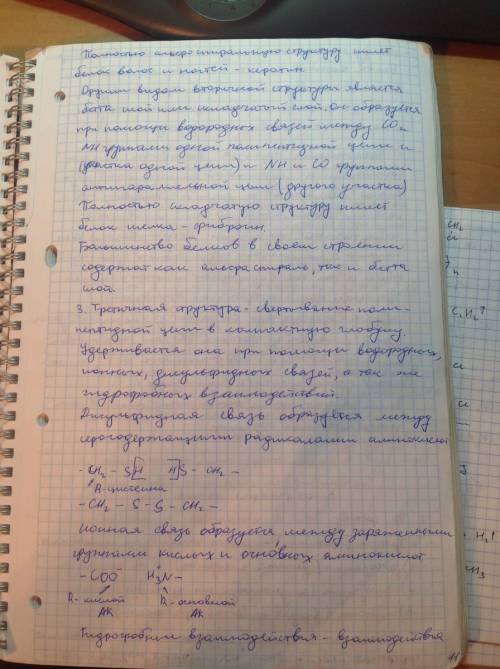 Полностью альфаспиральную структуру имеет
белок волос и ногтей - кератин.
Другим видом вторичной структуры является
бетта слой или складчатый слой. Он образуется
при помощи водородных связей между CO и
NH группами одной полипептидной цепи и
(участка одной цепи) и NH и CO группами
антипаралельной цепи (другого участка)
Полностью складчатую структуру имеет
белок шелка - фиброгин.
Большинство белков в своем строении
содержат как альфа спираль, так и бетта
слой.
3. Третичная структура - свертывание поли-
пептидной цепи в компактную глобулу.
Удерживается она при помощи водородных,
ионных, дисульфидных связей, а так же
гидрофобных взаимодействий.
Дисульфидная связь образуется между
серосодержащими радикалами аминокислот
- CH2 - S[H H]S - CH2 -
R-цистеина
- CH2 - S - S - CH2 -
Ионная связь образуется между заряженными
группами кислых и основных аминокислот
- COO⁻ H3N -
R- кислой R - основной
АК АК
Гидрофобные взаимодействия - взаимодействия